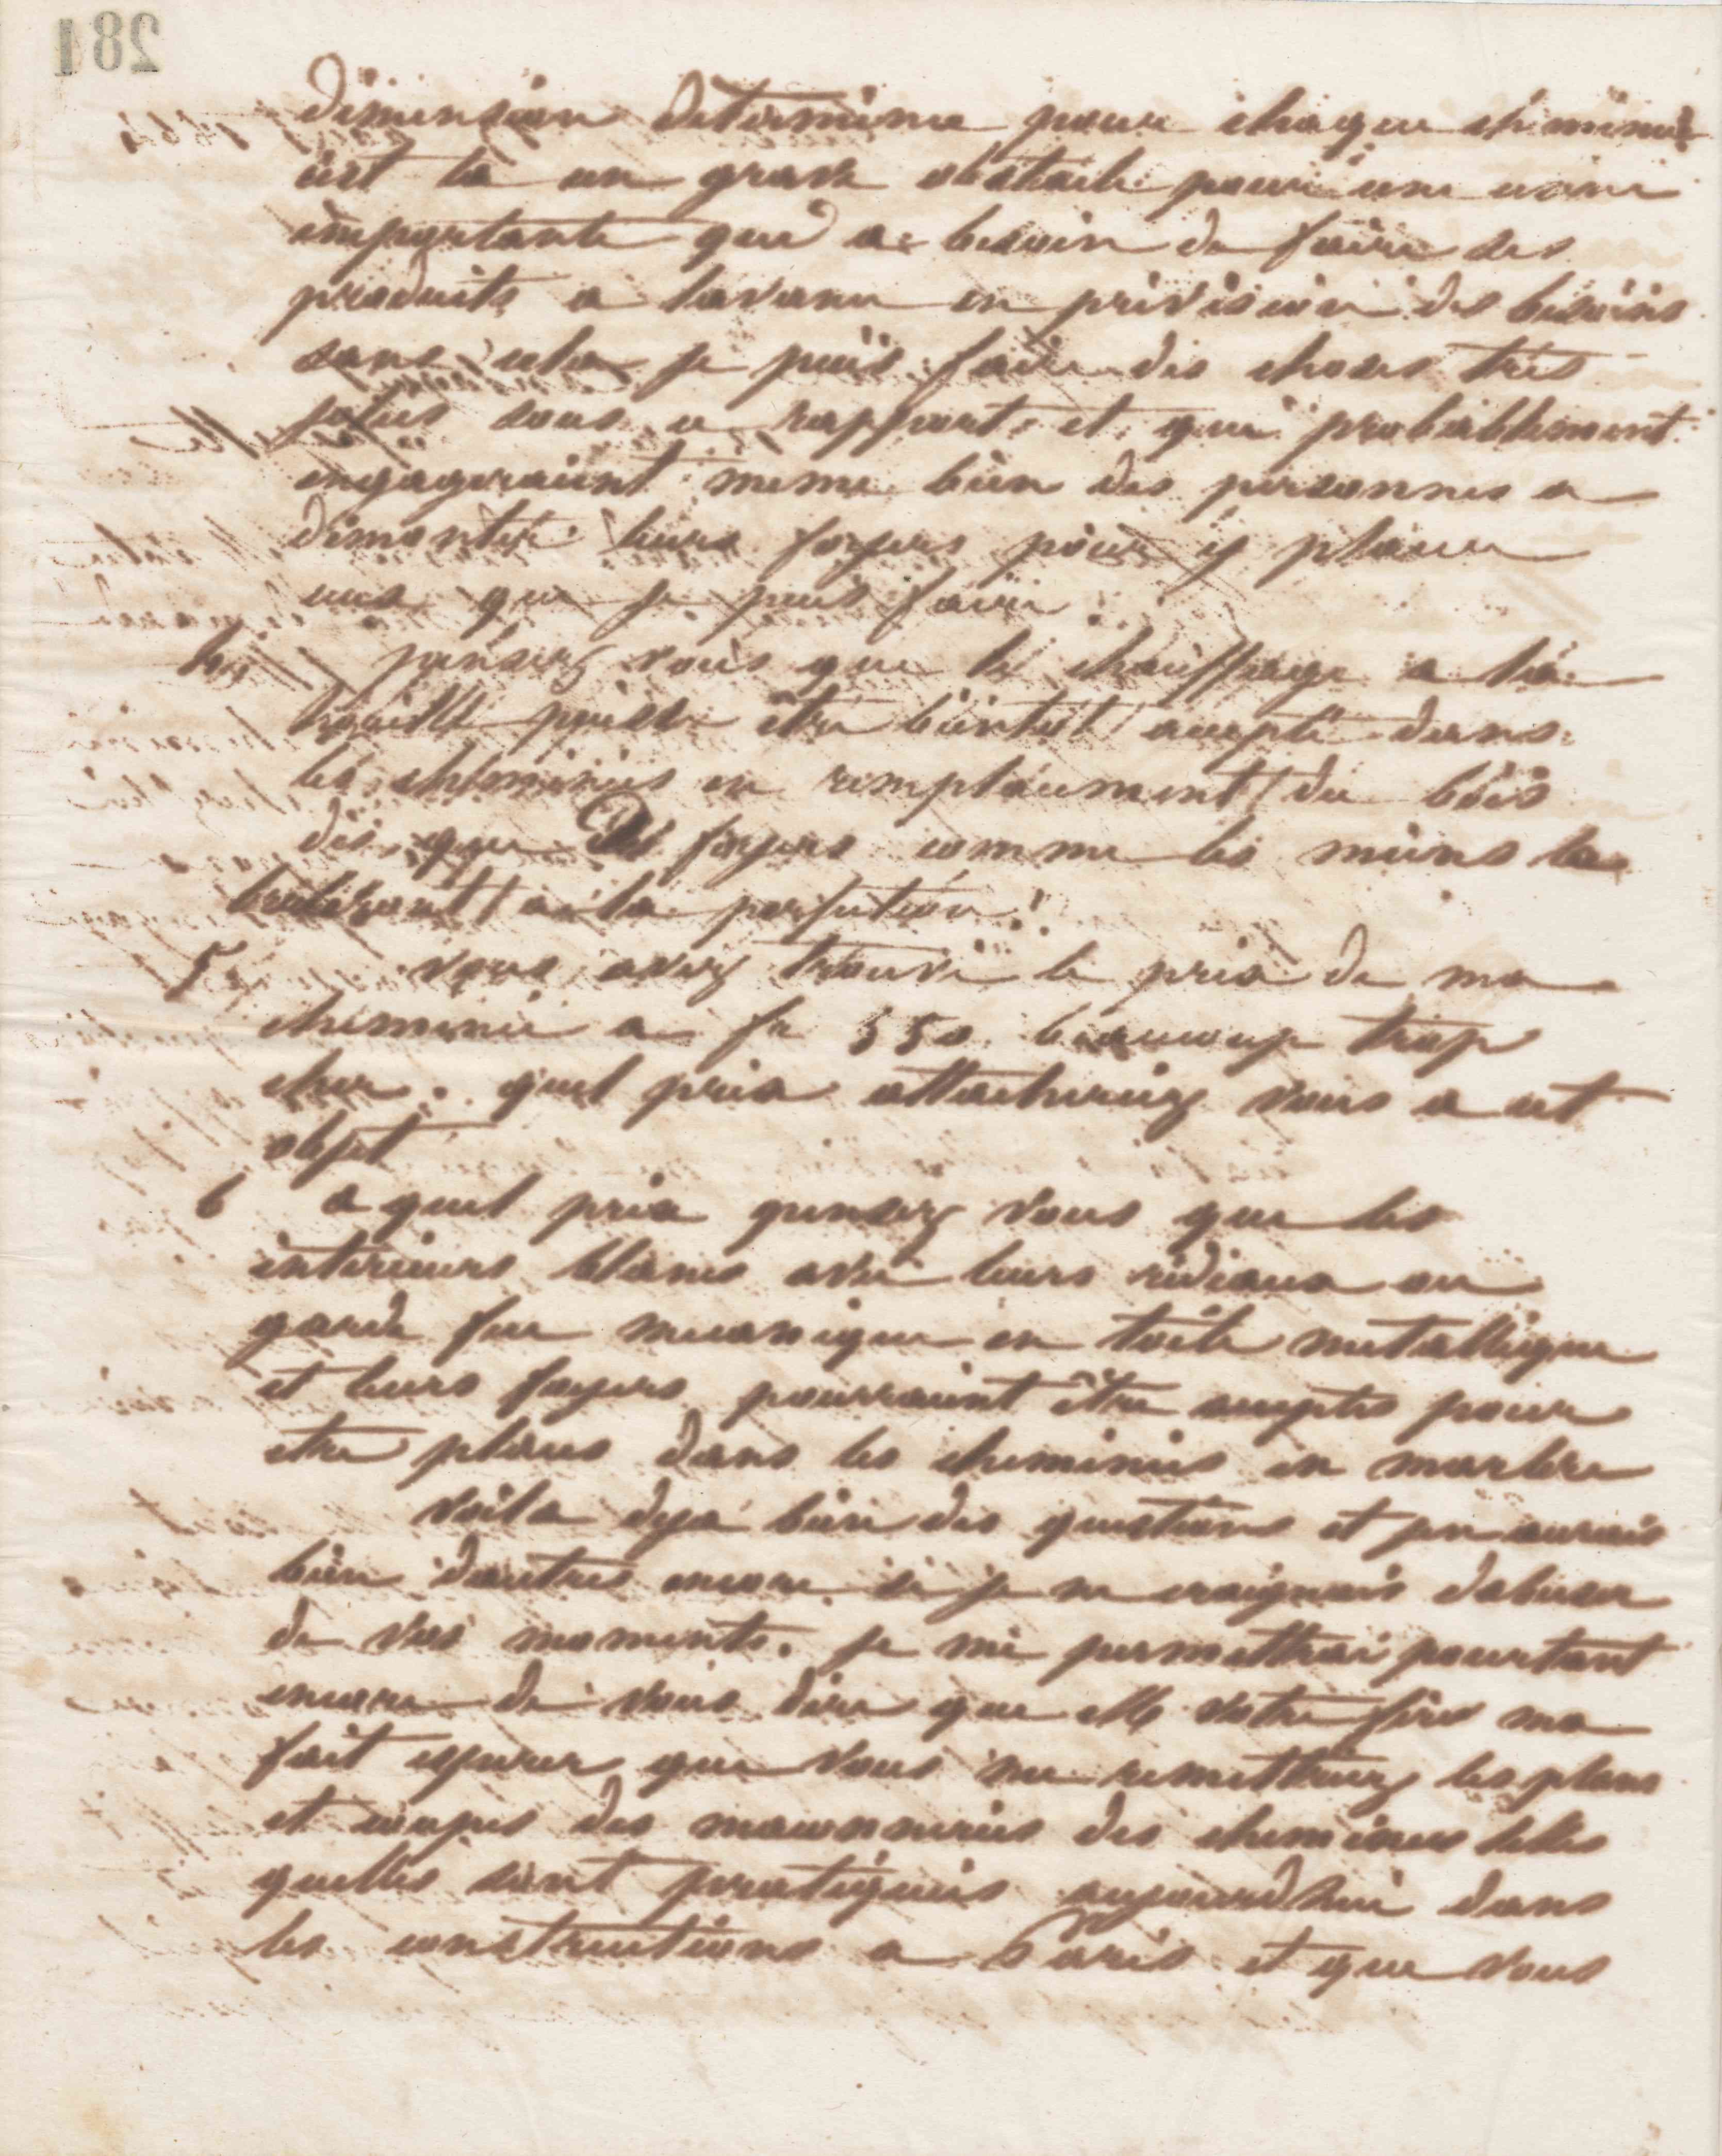 281
dimension determinee pour chaque cheminee
cest la un grave obstacle pour une usine
importante qui a besoin de faire des
produits a lavance en prévision des besoins
sans cela je puis faire des choses très
jolies sous ce rapport et qui probablement
engageraient meme bien des personnes a
démonter leurs foyers pour y placer
ceux que je puis faire
4 pensez vous que le chauffage a la
houille puisse etre bientot accepté dans
les cheminées en remplacement du bois
dès que des foyers comme les miens la
bruleront a la perfection
5 vous avez trouvé le prix de ma
cheminée a fr 550 beaucoup trop
cher. quel prix attacheriez vous a cet
objet
6 a quel prix pensez vous que les
intérieurs blancs avec leurs rideaux ou
garde feu mecanique en toile metallique
et leurs foyers pourraient être acceptés pour
etre placés dans les cheminées en marbre
voila deja bien des questions et jen aurais
bien dautres encore si je ne craignais dabuser
de vos moments. je me permettrai pourtant
encore de vous dire que votre frère ma
fait esperer que vous me remettriez les plans
et coupes des maconneries des cheminées telles
quelles sont pratiquées aujourdhui dans
les constructions a Paris et que vous